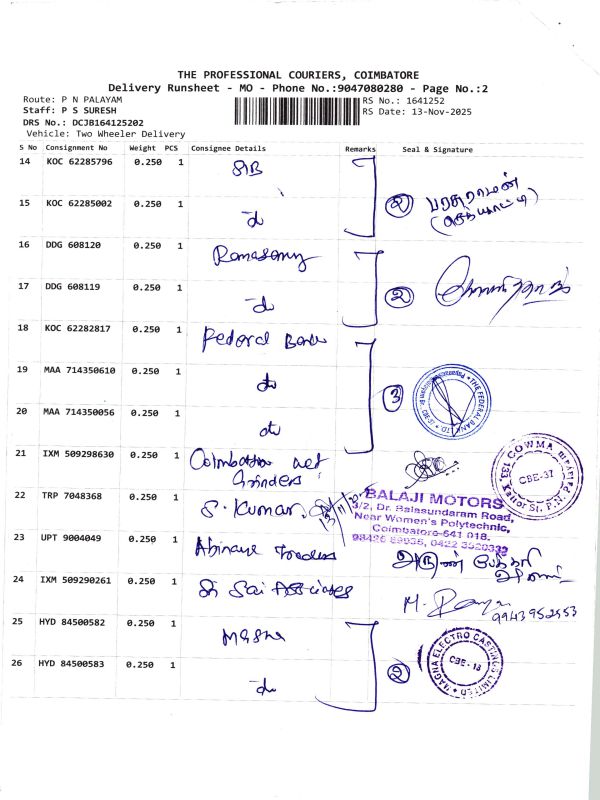 THE PROFESSIONAL COURIERS, COIMBATORE
Delivery Runsheet - MO - Phone No.:9047080280 - Page No.:2
Route: P N PALAYAM
RS No.: 1641252
Staff: P S SURESH
RS Date: 13-Nov-2025
DRS No.: DCJB164125202
Vehicle: Two Wheeler Delivery
S No Consignment No Weight PCS Consignee Details Remarks Seal & Signature
14 KOC 62285796 0.250 1 SIB
15 KOC 62285002 0.250 1 do
2
16 DDG 608120 0.250 1 Ramasamy
17 DDG 608119 0.250 1 do
2
18 KOC 62282817 0.250 1 Federal Bank
19 MAA 714350610 0.250 1 do
3
THE FEDERAL BANK LTD
20 MAA 714350056 0.250 1 do
21 IXM 509298630 0.250 1 Coimbatore wet
Grinders
COWMA
CBE-37
22 TRP 7048368 0.250 1 S. Kumar
BALAJI MOTORS
3/2, Dr. Balasundaram Road,
Near Women's Polytechnic,
Coimbatore-641 018.
23 UPT 9004049 0.250 1 Abinaya Traders
அருண்
24 IXM 509290261 0.250 1 Sri Sai Associates
9943952553
25 HYD 84500582 0.250 1 Magna
26 HYD 84500583 0.250 1 do
2
MAGNA ELECTRO CASTINGS LIMITED
CBE - 18